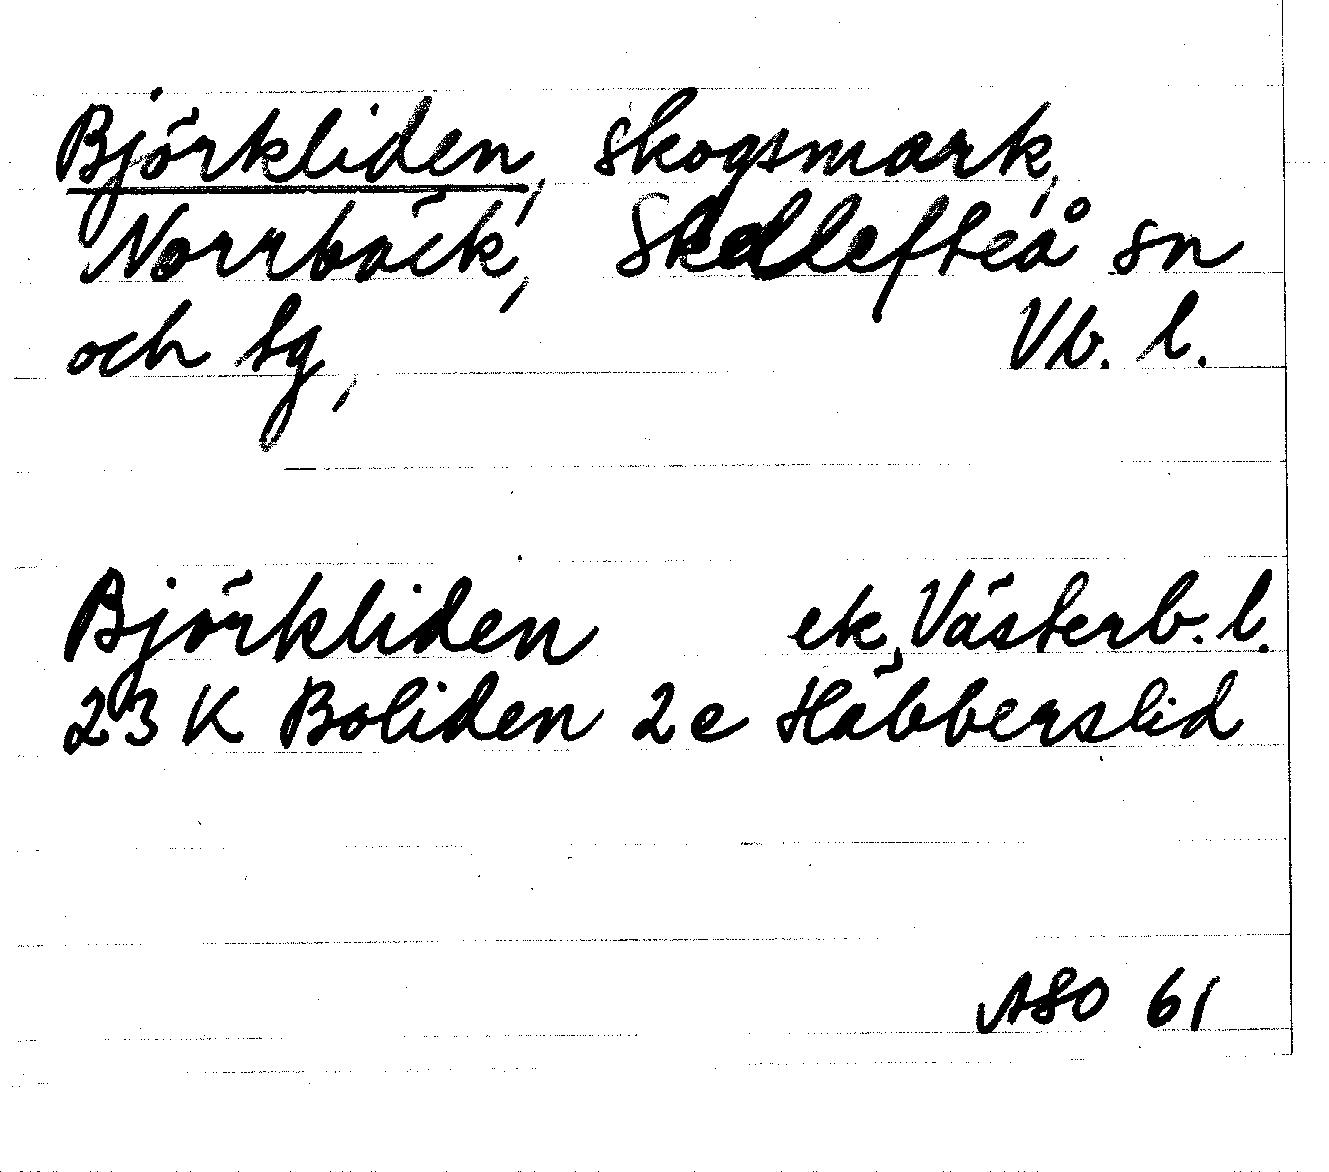 Björkliden, skogsmark,
Norrbäck, Skellefteå sn
och tg, Vb. l.
Björkliden ek, Västerb. l.
23 K Boliden 2e Häbberslid
ASO 61